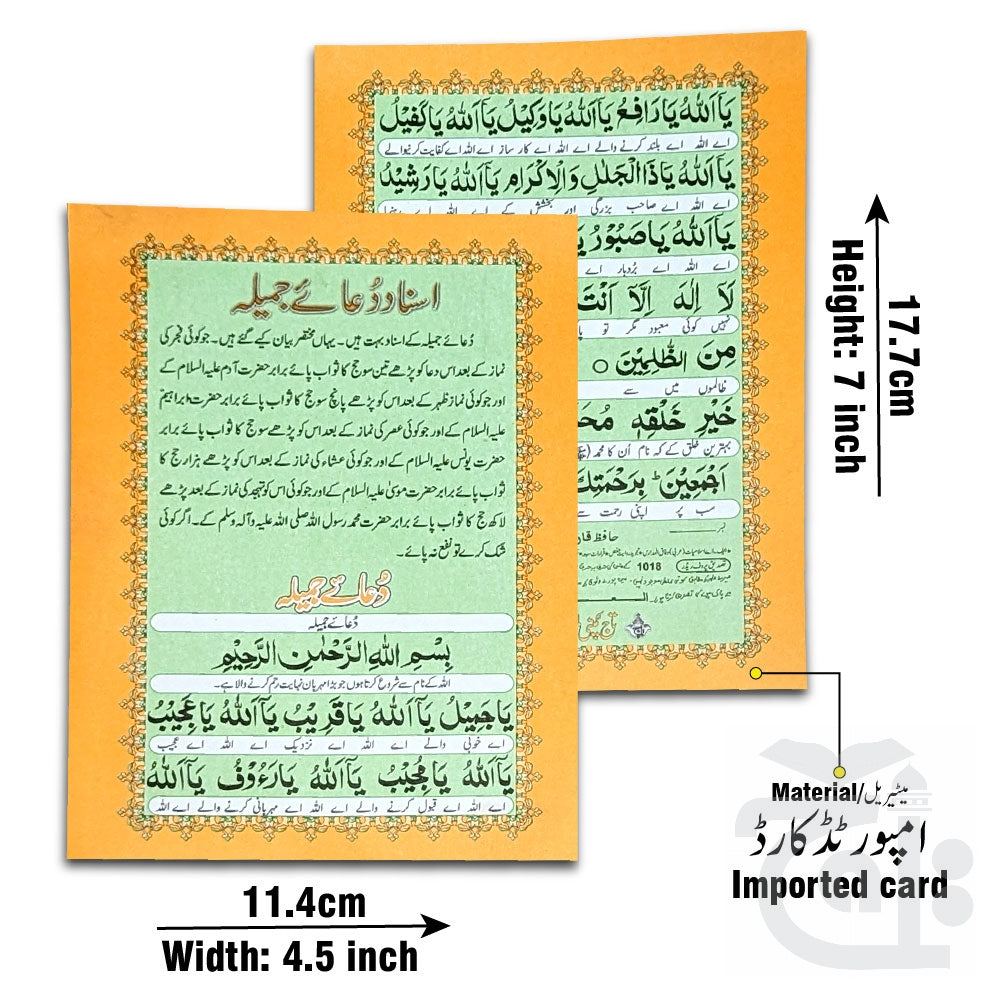 اسناد دُعائے جمیلہ
دُعائے جمیلہ کے اسناد بہت ہیں۔ یہاں مختصر بیان کیے گئے ہیں۔ جو کوئی فجر کی
نماز کے بعد اس دعا کو پڑھے تین سو حج کا ثواب پائے برابر حضرت آدم علیہ السلام کے
اور جو کوئی نماز ظہر کے بعد اس کو پڑھے پانچ سو حج کا ثواب پائے برابر حضرت ابراہیم
علیہ السلام کے اور جو کوئی عصر کی نماز کے بعد اس کو پڑھے سو حج کا ثواب پائے برابر
حضرت یونس علیہ السلام کے اور جو کوئی عشاء کی نماز کے بعد اس کو پڑھے ہزار حج کا
ثواب پائے برابر حضرت موسیٰ علیہ السلام کے اور جو کوئی اس کو تہجد کی نماز کے بعد پڑھے
لاکھ حج کا ثواب پائے برابر حضرت محمد رسول اللہ صلی اللہ علیہ وآلہ وسلم کے۔ اگر کوئی
شک کرے تو نفع نہ پائے۔
دُعائے جمیلہ
دُعائے جمیلہ
بِسْمِ اللهِ الرَّحْمٰنِ الرَّحِيْمِ
اللہ کے نام سے شروع کرتا ہوں جو بڑا مہربان نہایت رحم کرنے والا ہے۔
يَاجَمِيْلُ يَآ اَللهُ يَاقَرِيْبُ يَآ اَللهُ يَاعَجِيْبُ
اے خوبی والے اے اللہ اے نزدیک اے اللہ اے عجیب
يَآ اَللهُ يَامُجِيْبُ يَآ اَللهُ يَارَءُوْفُ يَآ اَللهُ
اے اللہ اے قبول کرنے والے اے اللہ اے مہربانی کرنے والے اے اللہ
يَآ اَللهُ يَارَافِعُ يَآ اَللهُ يَاوَكِيْلُ يَآ اَللهُ يَاكَفِيْلُ
اے اللہ اے بلند کرنے والے اے اللہ اے کارساز اے اللہ اے کفایت کرنیوالے
يَآ اَللهُ يَاذَا الْجَلٰلِ وَالْاِكْرَامِ يَآ اَللهُ يَارَشِيْدُ
اے اللہ اے صاحب بزرگی اور بخشش کے اے اللہ اے رہنما
يَآ اَللهُ يَاصَبُوْرُ
اے اللہ اے بُردبار اے
لَا اِلٰهَ اِلَّا اَنْتَ
نہیں کوئی معبود مگر تو
مِنَ الظّٰلِمِيْنَ ○
ظالموں میں سے
خَيْرِ خَلْقِهٖ
بہترین خلق کے کہ نام اُن کا محمد
اَجْمَعِيْنَ بِرَحْمَتِكَ
سب پر اپنی رحمت سے
حافظ
1018
تاج کمپنی
Height: 7 inch
17.7cm
11.4cm
Width: 4.5 inch
Material/میٹیریل
امپورٹڈ کارڈ
Imported card